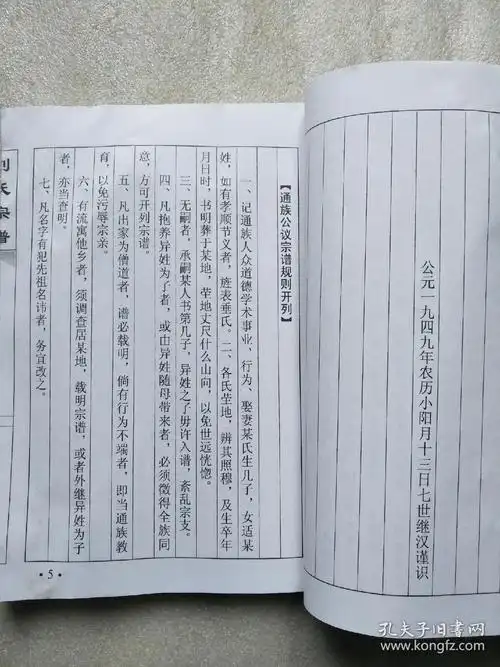 公元一九四九年农历小阳月十三日七世继汉谨识
【通族公议宗谱规则开列】
一、记通族人众道德学术事业、行为、娶妻某氏生几子，女适某
姓，如有孝顺节义者，旌表垂氏。二、各氏茔地，辨其照穆，及生卒年
月日时，书明葬于某地，茔地丈尺什么山向，以免世远恍惚。
三、无嗣者，承嗣某人书第几子，异姓之子毋许入谱，紊乱宗支。
四、凡抱养异姓为子者，或由异姓随母带来者，必须徵得全族同
意，方可开列宗谱。
五、凡出家为僧道者，谱必载明，倘有行为不端者，即当通族教
育，以免污辱宗亲。
六、有流寓他乡者，须调查居某地，载明宗谱，或者外继异姓为子
者，亦当查明。
七、凡名字有犯先祖名讳者，务宜改之。
·5·
氏宗谱
孔夫子旧书网
www.kongfz.com